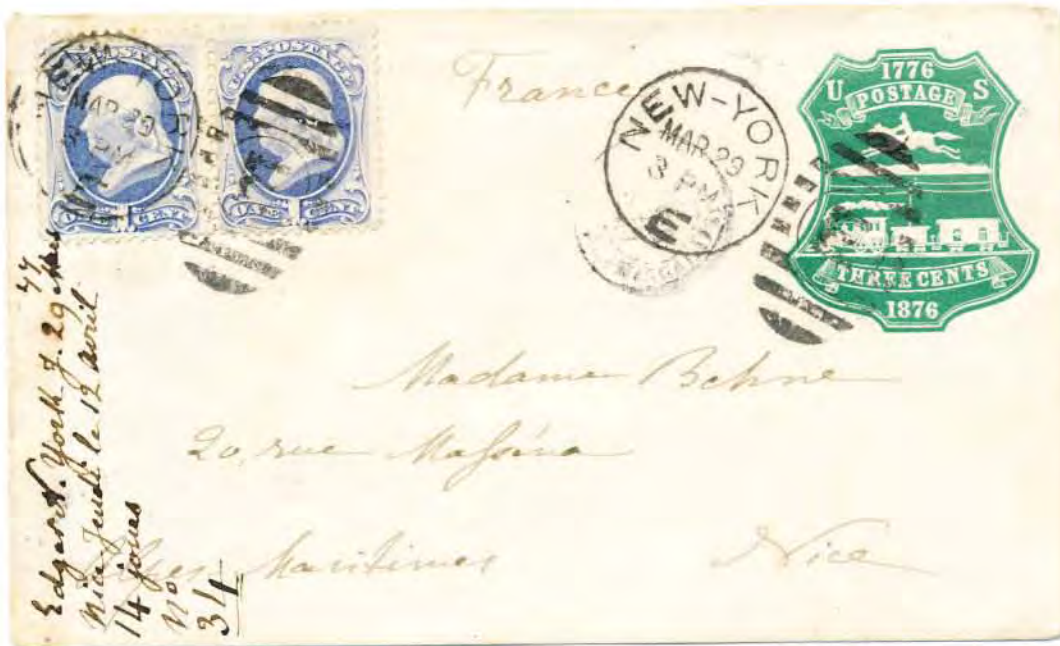 U.S. POSTAGE
ONE CENT
U.S. POSTAGE
ONE CENT
NEW YORK
MAR 29
PM
France
NEW-YORK
MAR 29
3 PM
1776
U S
POSTAGE
THREE CENTS
1876
Madame Behne
20, rue Masséna
Alpes Maritimes Nice
Edgar N. York J. 29 Mars 77
Nice Jeudi le 12 avril
14 jours
No
34